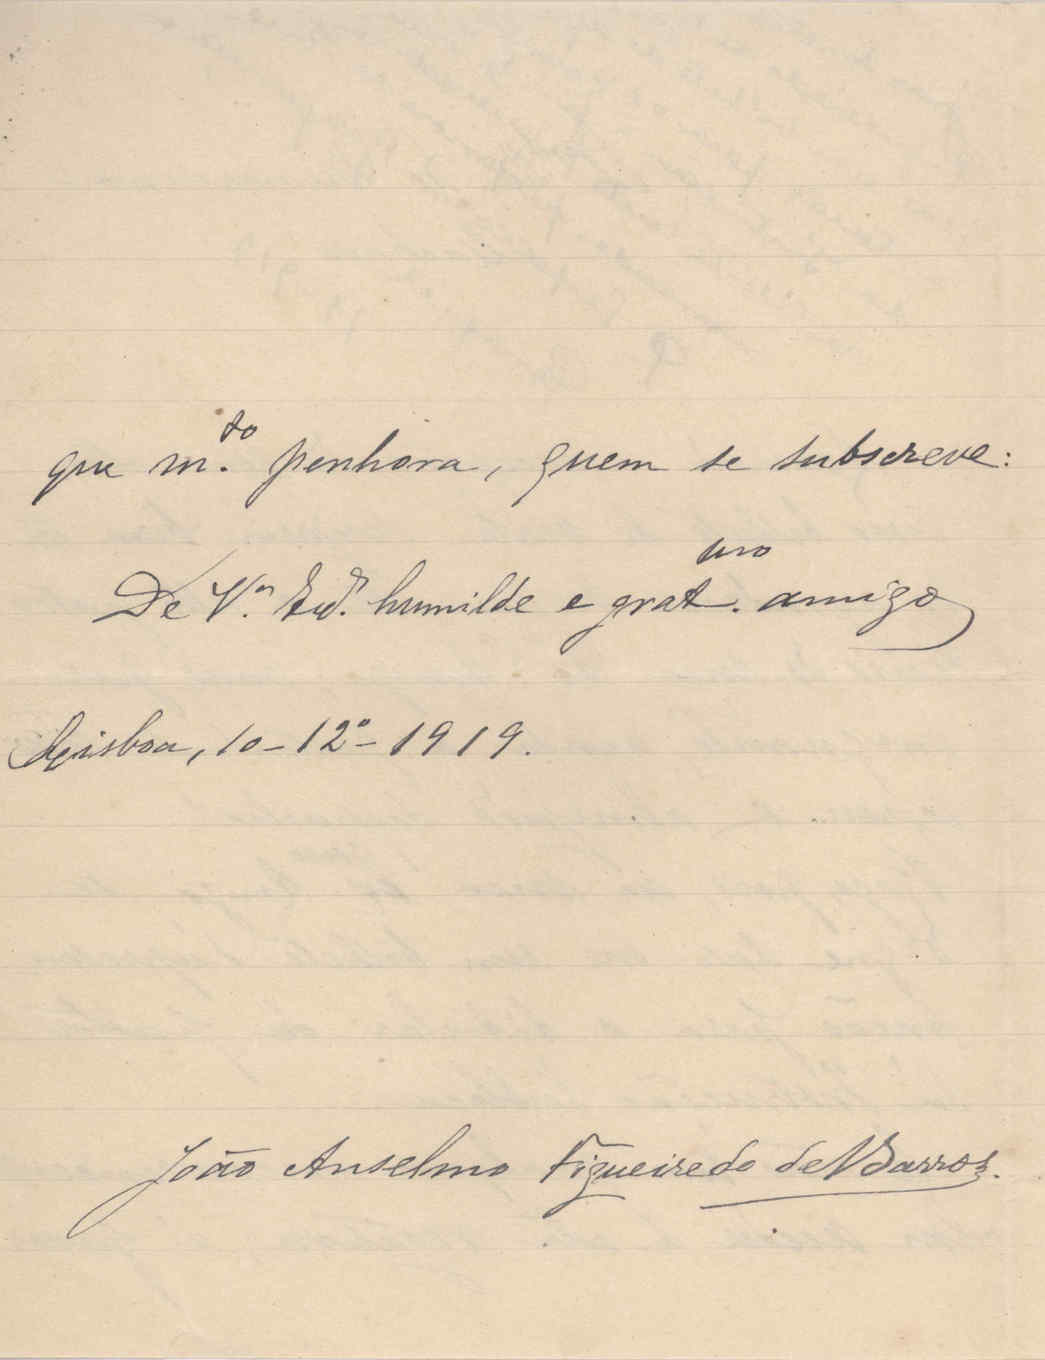 que m.to penhora, quem se subscreve:
De V.a Ex.a humilde e grat.mo amigo
Lisboa, 10-12º-1919.
João Anselmo Figueiredo de Barros.